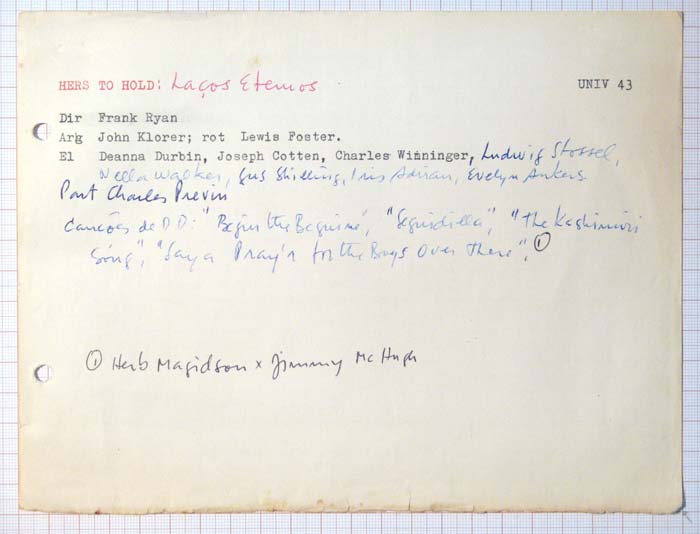 HERS TO HOLD: Laços Eternos UNIV 43
Dir Frank Ryan
Arg John Klorer; rot Lewis Foster.
El Deanna Durbin, Joseph Cotten, Charles Winninger, Ludwig Stossel,
Nella Walker, Gus Shilling, Iris Adrian, Evelyn Ankers.
Part Charles Previn
Canções de DD: "Begin the Beguine", "Seguidilla", "The Kashimiri
Song", "Say a Pray'r for the Boys Over There". ①
① Herb Magidson x Jimmy McHugh